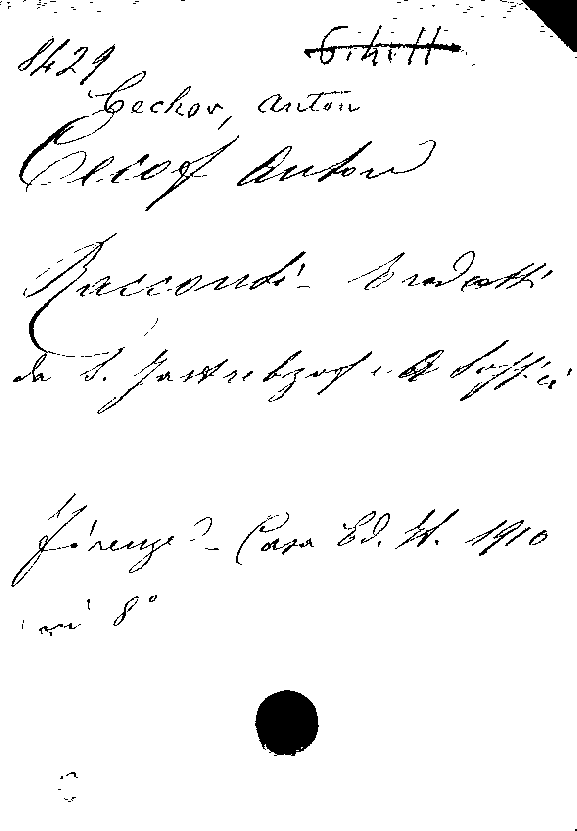 8429 6.h.11
Cechov, Anton
Cecof Anton
Racconti - tradotti
da S. Jastrebzof e A Soffici
Firenze - Casa Ed. It. 1910
in 8°